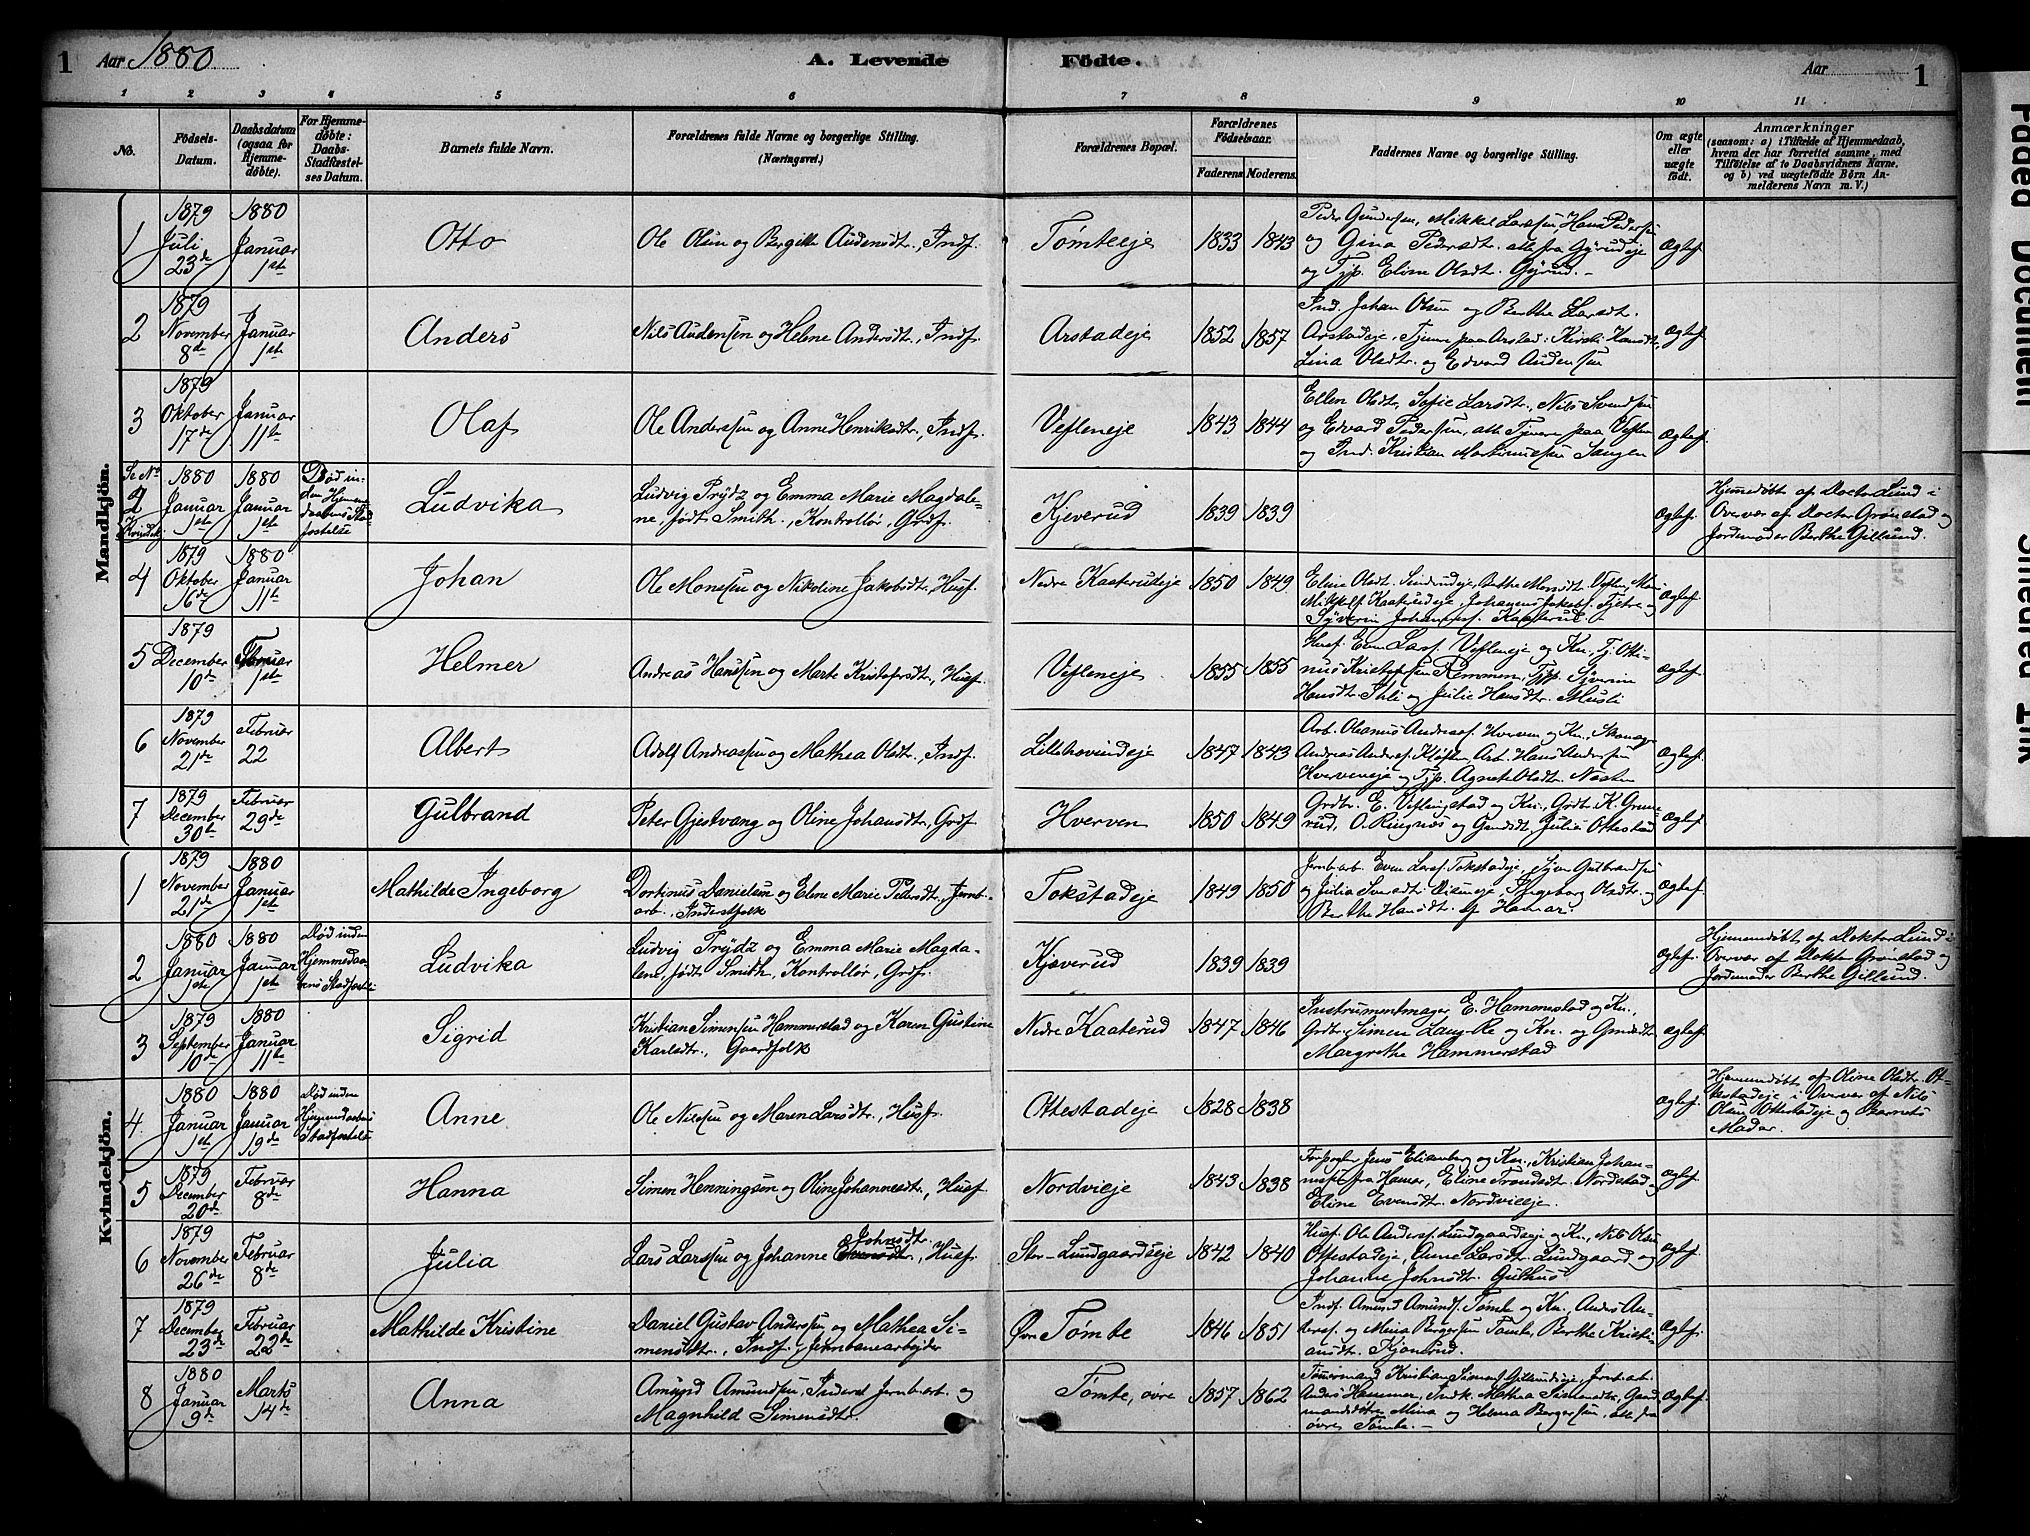 1 Aar 1880 A. Levende Fødte. Aar 1
1 2 3 4 5 6 7 8 9 10 11
No. Fødsels-Datum. Daabsdatum (ogsaa for Hjemme-døbte). For Hjemme-døbte: Daabs-Stadfæstel-ses Datum. Barnets fulde Navn. Forældrenes fulde Navne og borgerlige Stilling. (Næringsvei.) Forældrenes Bopæl. Forældrenes Fødselsaar. Faderens Moderens Faddernes Navne og borgerlige Stilling. Om ægte eller uægte født. Anmærkninger (saasom: a) i Tilfælde af Hjemmedaab, hvem der har forrettet samme, med Tilføielse af to Daabsvidners Navne, og b) ved uægtefødte Børn An-melderens Navn m. V.)
Mandkjøn.
1 1879 Juli 23de 1880 Januar 1ste Otto Ole Olsen og Bergitte Audensdt., Indf. Tømteeje 1833 1843 Peder Gundersen, Mikkel Larssen, Hans Pedersen
og Gina Pedersdt. alle fra
og Tjp. Eline Olsdt. Ægtef.
2 1879 November 8de Januar 1ste Anders Nils Audensen og Helene Andersdt., Indf. Arstadeje 1852 1857 Ind. Johan Olsen og Berthe Larsdt.
Arstadeje, Tjenere paa Arstad: Kirsti Hansdt.,
Lina Olsdt. og Edvard Audensen Ægtef.
3 1879 Oktober 17de Januar 11te Olaf Ole Anderssen og Anne Henriksdt., Indf. Vefleneje 1843 1844 Ellen Olsdt., Sofie Larsdt., Nils Svendsen
og Edvard Pedersen, alle Tjenere paa Veflen
og Ind. Kristian Martinussen Ægtef.
Se No 2 Kvindek. 1880 Januar 1ste 1880 Januar 1ste Død in-
den Hjemme
daabens Stad
fæstelse Ludvika Ludvig Prydz og Emma Marie Magdale-
ne, født Smith, Kontrollør, Grdf. Kjeverud 1839 1839 Ægtef. Hjemedøbt af Doctor Lund i
Overvær af Doctor Grønstad og
Jordemoder Berthe Gillund.
4 1879 Oktober 16de 1880 Januar 11te Johan Ole Monssen og Nikoline Jakobsdt., Husf. Nedre Kaaterudeje 1850 1849 Eline Olsdt. Berthe Monsdt. Veflen,
Mikkelsf. Kaaterudeje, Johannes Jakobsf. og
Syverin Johannessf. Kaaterud. Ægtef.
5 1879 December 10de Februar 1ste Helmer Andreas Hanssen og Marte Kristofersdt., Husf. Vefleneje 1855 1855 Husf. Even Larsf. Vefleneje og Kn., Tj. Otti-
nus Kristoffersen Remmen, Tjp. Syverin
Hansdt. Ihli og Julie Hansdt. Musli Ægtef.
6 1879 November 21de Februar 22 Albert Adolf Andreassen og Mathea Olsdt., Indf. Lillehovindeje 1847 1843 Arb. Oleanus Andreasf. Hverven og Kn.,
Andreas Andersf. Arb. Hans Andersen
Hverveneje og Tjp. Agnete Olsdt. Ægtef.
7 1879 December 30te Februar 29de Gulbrand Peter Gjestvang og Oline Johansdt., Grdf. Hverven 1850 1849 Grdbr. E. Veflingstad og Kn., Grdbr. K. Grime-
rud, O. Ringnæs og Julie Ottestad Ægtef.
Kvindekjøn.
1 1879 November 21de 1880 Januar 1ste Mathilde Ingeborg Dortinus Danielsen og Eline Marie Pedersdt., Jernb.-
arb., Inderstfolk Tokstadeje 1849 1850 Jernb.arb. Even Larsf. Tokstadeje, Gulbrandsen
og Julia Ingeborg Olsdt. og
Berthe Hansdt. af Hamar. Ægtef.
2 1880 Januar 1ste 1880 Januar 1ste Død inden
Hjemmedaa-
bens Stadfæstelse Ludvika Ludvig Prydz og Emma Marie Magda-
lene, født Smith, Kontrollør, Grdf. Kjæverud 1839 1839 Ægtef. Hjemmedøbt af Doktor Lund i
Overvær af Doktor Grønstad og
Jordemoder Berthe Gillund.
3 1879 September 10de 1880 Januar 11te Sigrid Kristian Simensen Hammerstad og Karen Gustine
Karlsdtr., Gaardfolk Nedre Kaaterud 1847 1846 Instrumentmager E. Hammerstad og Kn.,
Grdbr. Simen Lang-Re og Kn. og
Margrethe Hammerstad Ægtef.
4. 1880 Januar 1ste 1880 Januar 19de Død inden
Hjemmedaabens
Stadfæstelse Anne Ole Nilssen og Maren Larsdt., Husf. Ottestadeje 1828 1838 Ægtef. Hjemmedøbt af Oline Olsdt. Ot-
testadeje i Overvær af Nils
Olsen Ottestadeje og Barnets
Moder.
5 1879 December 20de Februar 8de Hanna Simen Henningsen og Oline Johannesdt., Husf. Nordvieje 1843 1838 Jens og Kn., Kristian Johan-
nesf. fra Hamar, Eline Trondsdt. Nordstad
Eline Evensdt. Nordvieje. Ægtef.
6 1879 November 26de Februar 8de Julia Lars Larssen og Johanne Johnsdt., Husf. Stor-Lundgaardseje 1842 1840 Husf. Ole Andersf. Lundgaardseje og Kn., Nils Olsen
Ottestadeje, Anne Larsdt. Lundgaard og
Johanne Johnsdt. Gulhus Ægtef.
7 1879 December 23de Februar 22de Mathilde Kristine Daniel Gustav Anderssen og Mathea Si-
mensdtr., Indf., Jernbanearbejder Øvre Tømte 1846 1851 Indf. Amund Amundf. Tømte og Kn., Anders An-
dersf. og Mina Bergersen Tømte, Berthe Kristi-
ansdt. Ægtef.
8 1880 Januar 9de Marts 14de Anna Amund Amundsen, Inderst Jernb.arb. og
Magnhild Simensdtr. Tømte, øvre 1857 1862 Tømmermand Kristian Simensf. Gillundeje, Jernb.arb.
Anders Hammer, Indk. Mathea Simensdt., Gaard
mandsdøtre Mina og Helma Bergersen, alle fra
øvre Tømte. Ægtef.
Faded Document
Smeared Ink